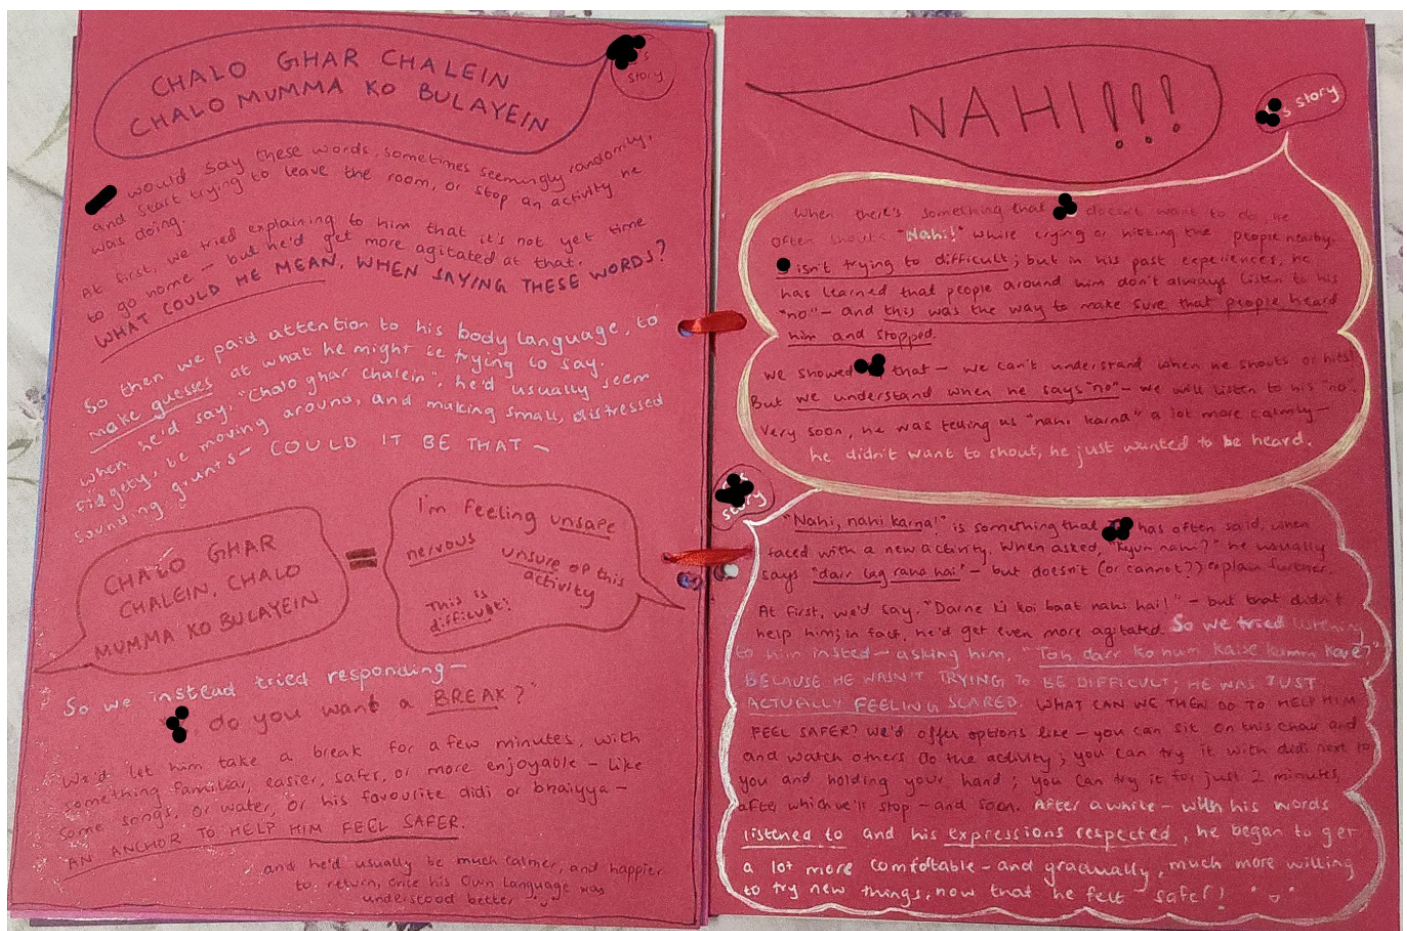 CHALO GHAR CHALEIN
CHALO MUMMA KO BULAYEIN
's
story
would say these words, sometimes seemingly randomly,
and start trying to leave the room, or stop an activity he
was doing.
At first, we tried explaining to him that it's not yet time
to go home – but he'd get more agitated at that.
WHAT COULD HE MEAN, WHEN SAYING THESE WORDS?
So then we paid attention to his body language, to
make guesses at what he might be trying to say.
when he'd say, "Chalo ghar chalein", he'd usually seem
fidgety, be moving around, and making small, distressed
sounding grunts – COULD IT BE THAT –
CHALO GHAR
CHALEIN, CHALO
MUMMA KO BULAYEIN
=
I'm feeling unsafe
nervous
unsure of this
activity
This is
difficult!
So we instead tried responding –
, do you want a BREAK?"
We'd let him take a break for a few minutes, with
something familiar, easier, safer, or more enjoyable – like
some songs, or water, or his favourite didi or bhaiyya –
AN ANCHOR TO HELP HIM FEEL SAFER.
and he'd usually be much calmer, and happier
to return, once his own language was
understood better
NAHI!!!
's story
When there's something that doesn't want to do he
often shouts "Nahi!" while crying or hitting the people nearby.
isn't trying to difficult; but in his past experiences, he
has learned that people around him don't always listen to his
"no" – and this was the way to make sure that people heard
him and stopped.
We showed that – we can't understand when he shouts or hits!
But we understand when he says "no" – we will listen to his "no".
Very soon, he was telling us "nahi karna" a lot more calmly –
he didn't want to shout, he just wanted to be heard.
story
"Nahi, nahi karna!" is something that has often said, when
faced with a new activity. When asked, "Kyun nahi?" he usually
says "darr lag raha hai" – but doesn't (or cannot??) explain further.
At first, we'd say, "Darne ki koi baat nahi hai!" – but that didn't
help him; in fact, he'd get even more agitated. So we tried listening
to him insted – asking him, "Toh darr ko hum kaise kumm kare?"
BECAUSE HE WASN'T TRYING TO BE DIFFICULT; HE WAS JUST
ACTUALLY FEELING SCARED. WHAT CAN WE THEN DO TO HELP HIM
FEEL SAFER? We'd offer options like – you can sit on this chair and
and watch others do the activity; you can try it with didi next to
you and holding your hand; you can try it for just 2 minutes,
after which we'll stop – and soon. After a while – with his words
listened to and his expressions respected, he began to get
a lot more comfortable – and gradually, much more willing
to try new things, now that he felt safer!